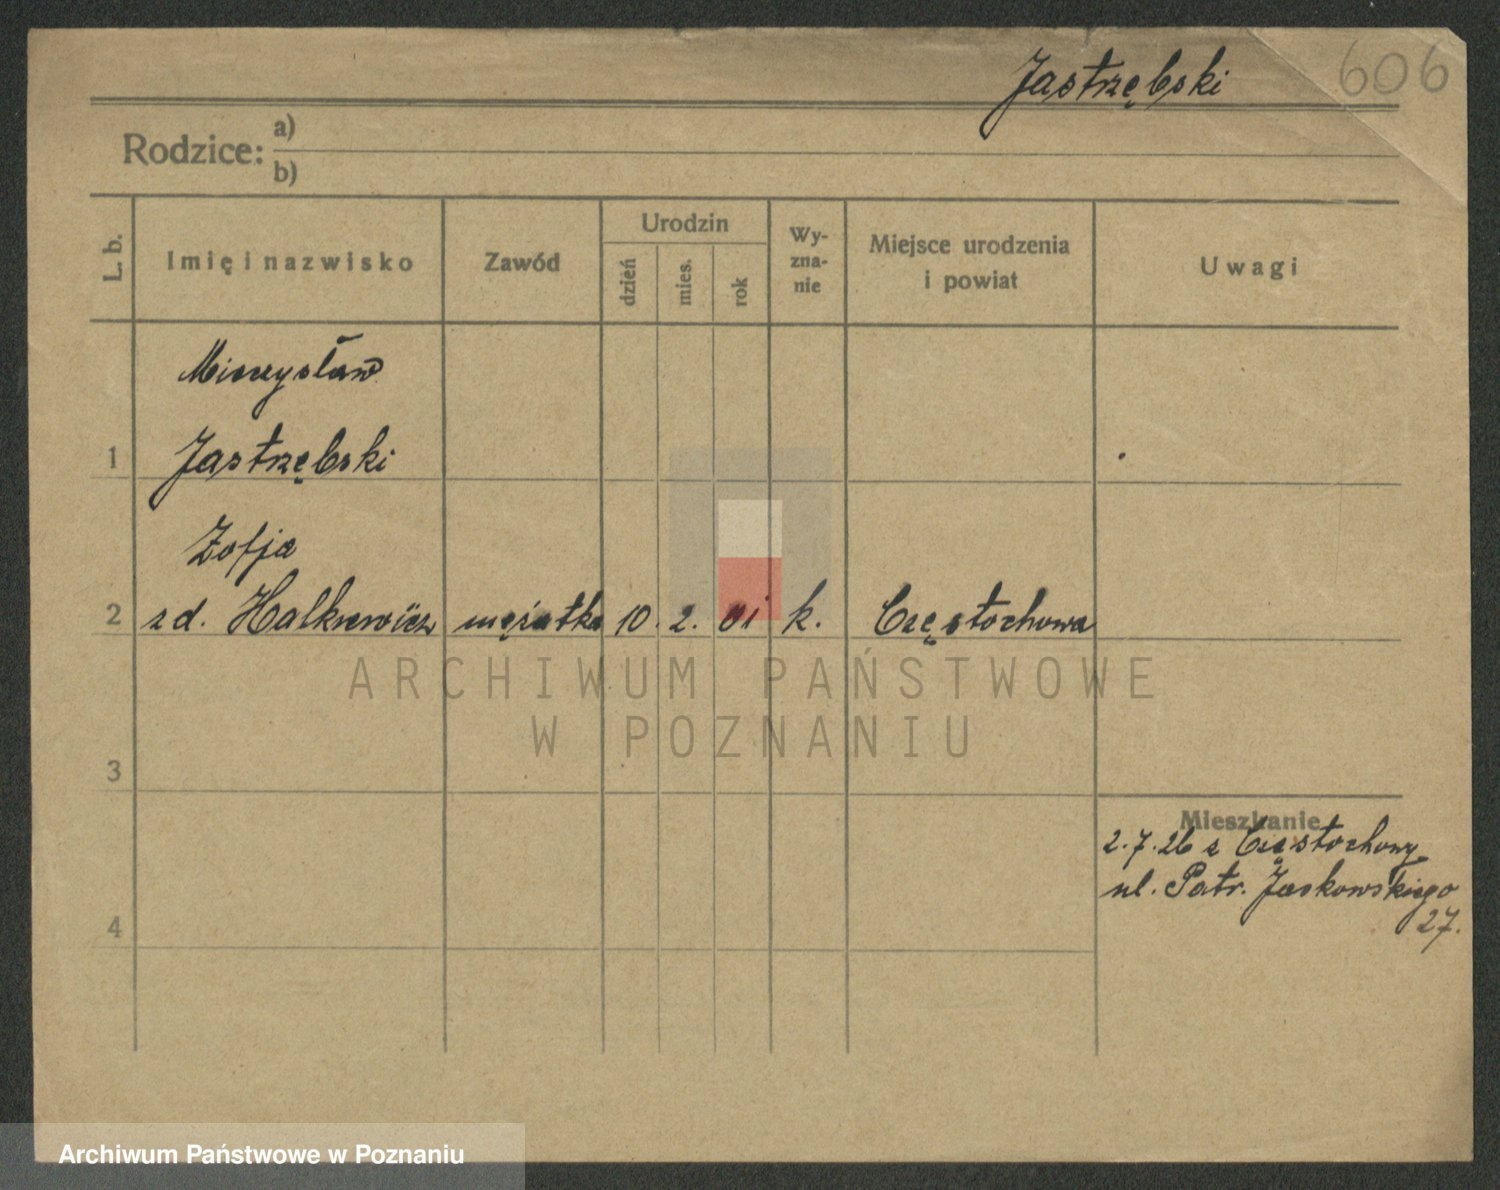 Jastrzębski
606
Rodzice: a)
b)
L. b.
Imię i nazwisko
Zawód
Urodzin
dzień
mies.
rok
Wy-
zna-
nie
Miejsce urodzenia
i powiat
Uwagi
Mieczysław
1 Jastrzębski
Zofja
2 z d. Halkiewicz mężatka 10. 2. 01 k. Częstochowa
ARCHIWUM PAŃSTWOWE
W POZNANIU
3
Mieszkanie
2.7.26 z Częstochowy
ul. Patr. Jackowskiego
27.
4
Archiwum Państwowe w Poznaniu